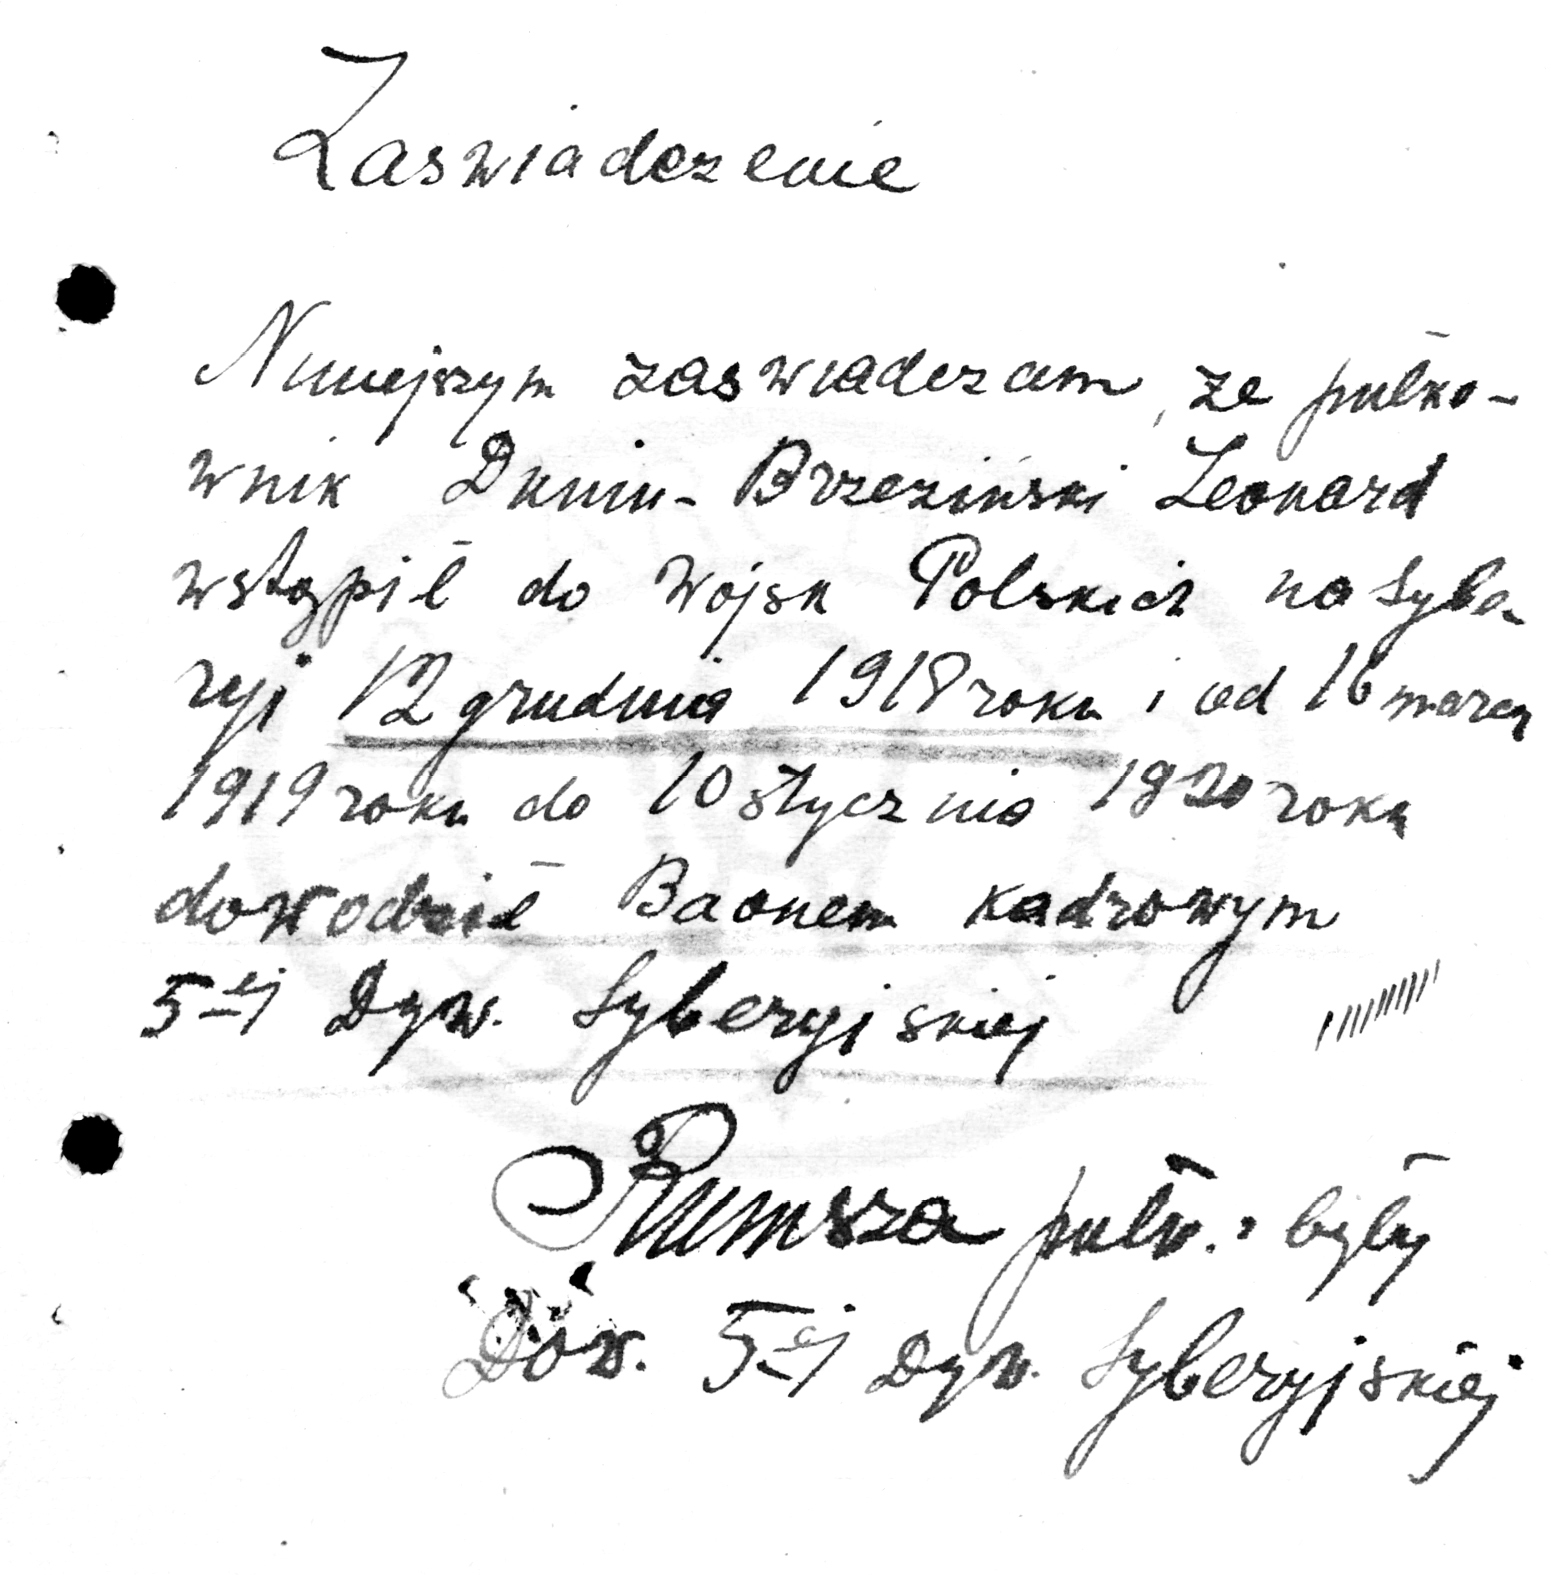 Zaswiadczenie
Niniejszym zaswiadczam, ze pułko-
wnik Dunin-Brzeziński Leonard
wstąpił do Wojsk Polskich na Sybe-
ryj 12 grudnia 1918 roku i od 16 marca
1919 roku do 10 stycznia 1920 roku
dowodził Baonem kadrowym
5-ej Dyw. Syberyjskiej
Rumsza pułk. były
Dow. 5-ej Dyw. Syberyjskiej